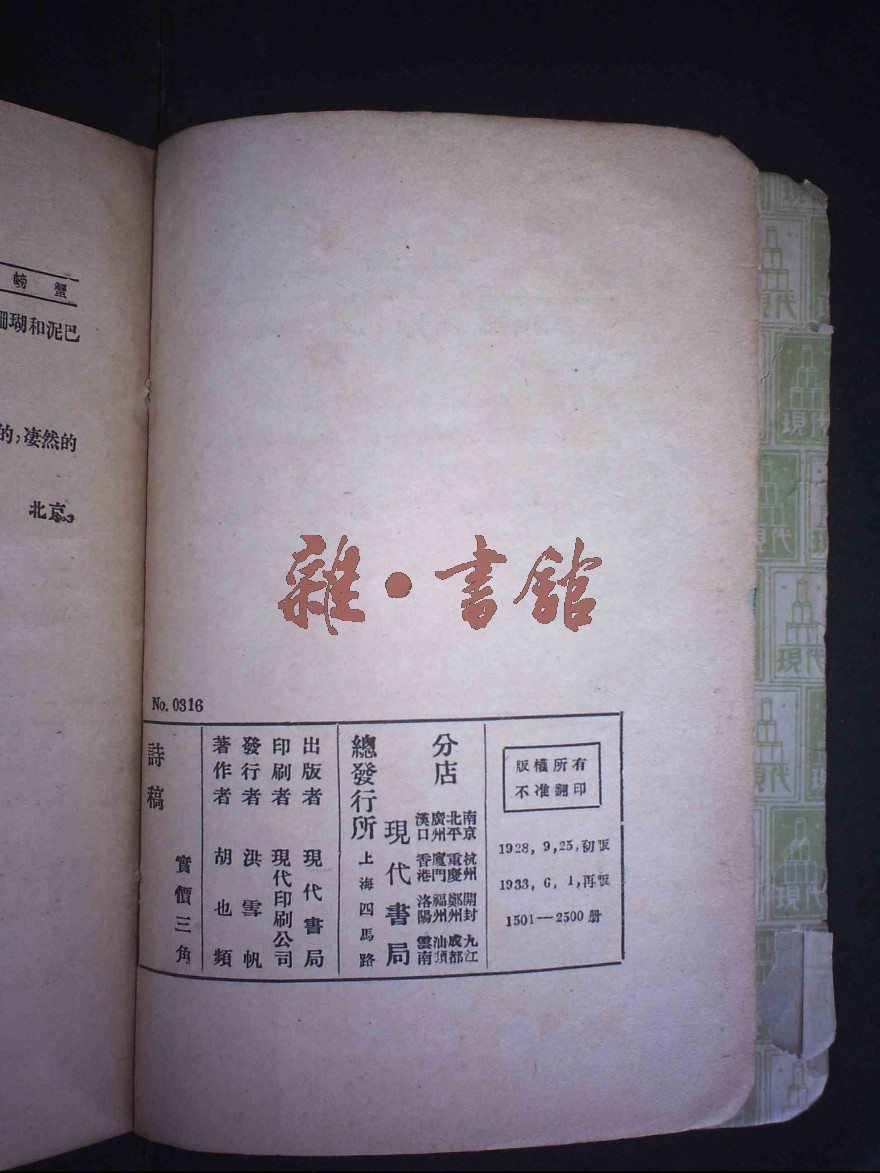 螃蟹
珊瑚和泥巴
的，凄然的
北京。
雜・書館
No. 0316
版權所有
不准翻印
1928, 9, 25, 初版
1933, 6, 1, 再版
1501—2500 册
分店
南京 杭州 開封 九江
北平 重慶 鄭州 成都
廣州 廈門 福州 汕頂
漢口 香港 洛陽 雲南
總發行所
現代書局
上海四馬路
出版者 現代書局
印刷者 現代印刷公司
發行者 洪雪帆
著作者 胡也頻
詩稿
實價三角
現代
現代
現代
現代
現代